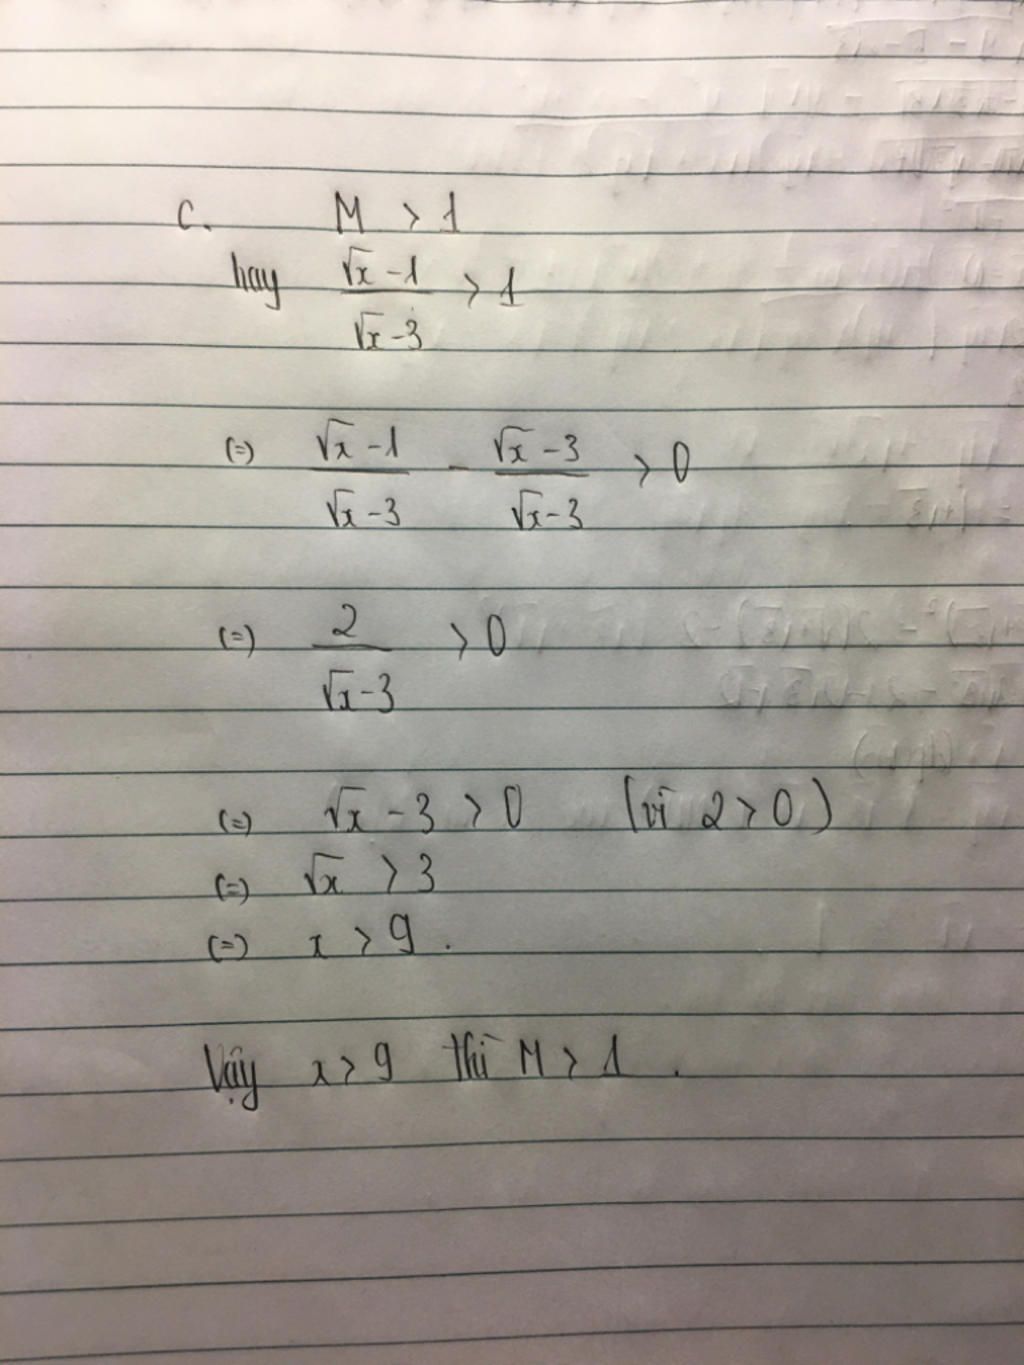 c. M > 1
hay (√x - 1)/(√x - 3) > 1
(=) (√x - 1)/(√x - 3) - (√x - 3)/(√x - 3) > 0
(=) 2/(√x - 3) > 0
(=) √x - 3 > 0 (vì 2 > 0)
(=) √x > 3
(=) x > 9.
Vậy x > 9 thì M > 1.